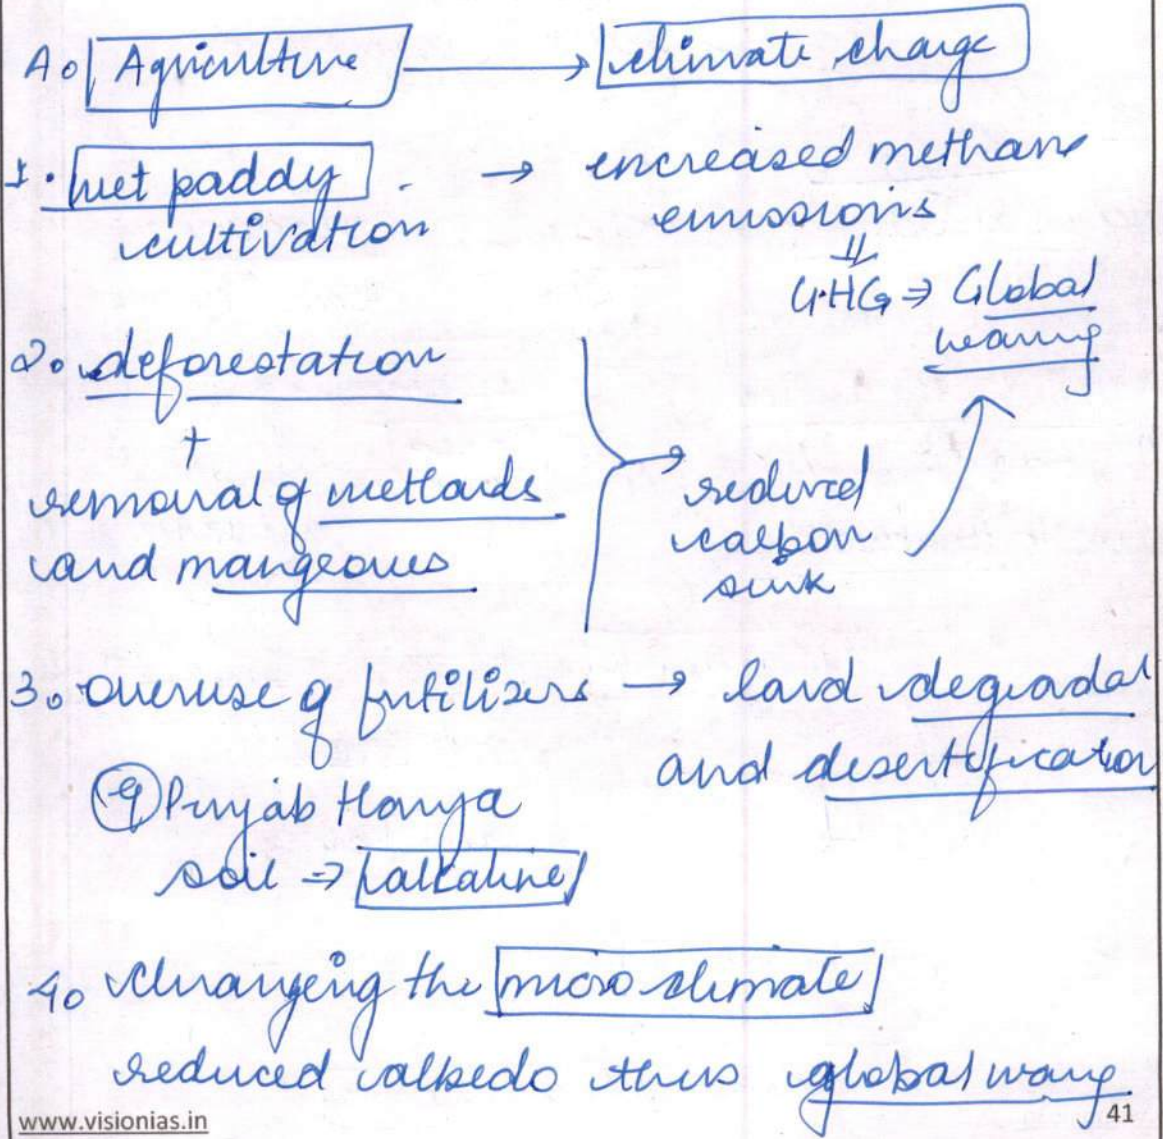 A. Agriculture → climate change
1. wet paddy → increased methane
cultivation emissions
⇓
GHG ⇒ Global
warming
2. deforestation
+
removal of wetlands → reduced
and mangroves carbon
sink
3. overuse of fertilizers → land degradat
and desertification
eg Punjab Harya
soil ⇒ alkaline
4. changing the micro climate
reduced albedo thus global warg
www.visionias.in
41